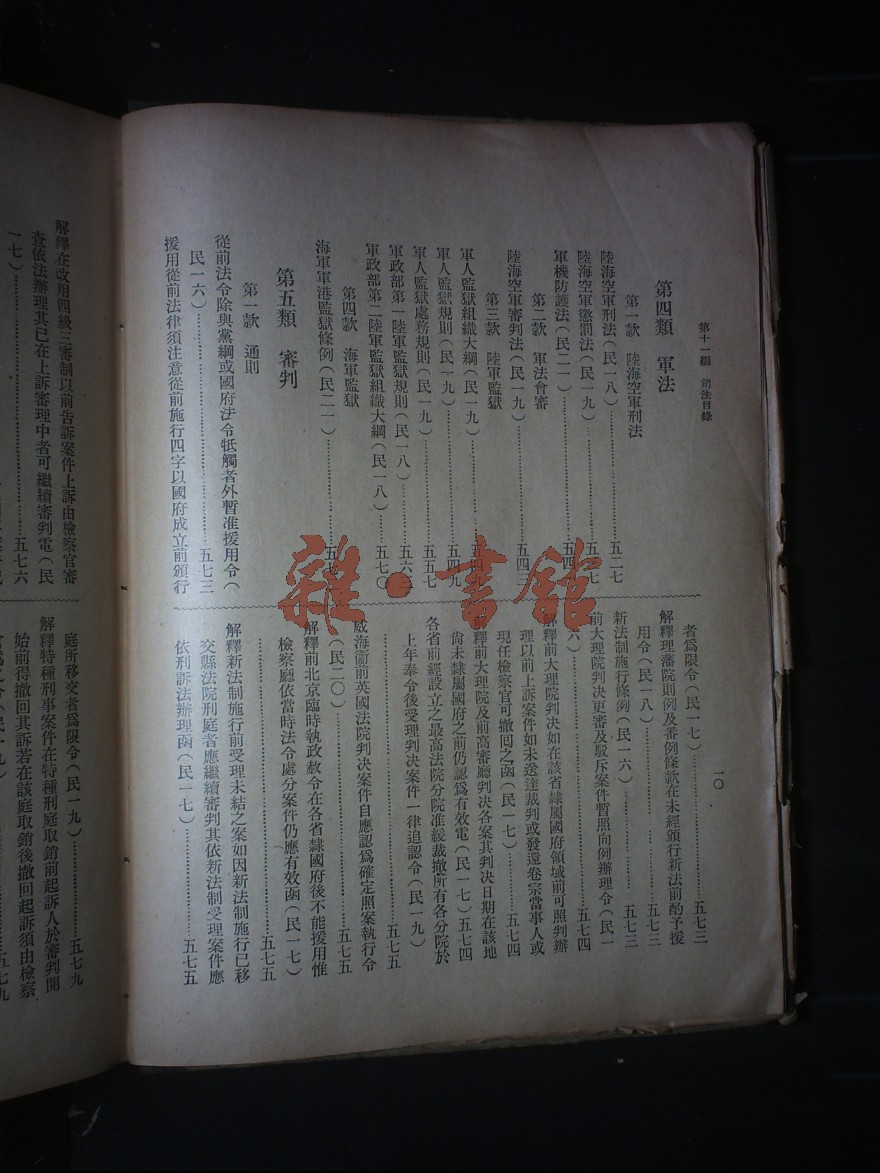 第十一編　司法目錄
一〇
第四類　軍法
第一款　陸海空軍刑法
陸海空軍刑法(民一八)……五二七
陸海空軍懲罰法(民一九)……五三七
軍機防護法(民二一)……五四
第二款　軍法會審
陸海空軍審判法(民一九)……五四三
第三款　陸軍監獄
軍人監獄組織大綱(民一九)……五四
軍人監獄規則(民一九)……五四九
軍人監獄處務規則(民一九)……五五七
軍政部第一陸軍監獄規則(民一八)……五六
軍政部第二陸軍監獄組織大綱(民一八)……五七〇
第四款　海軍監獄
海軍軍港監獄條例(民二一)……五七
第五類　審判
第一款　通則
從前法令除與黨綱或國府法令牴觸者外暫准援用令(
民一六)……五七三
援用從前法律須注意從前施行四字以國府成立前頒行
者爲限令(民一七)……五七三
解釋理藩院則例及番例條款在未經頒行新法前酌予援
用令(民一八)……五七三
新法制施行條例(民一六)……五七三
前大理院判决更審及駁斥案件暫照向例辦理令(民一
六)……五七四
解釋前大理院判决如在該省隸屬國府領域前可照判辦
理以前上訴案件如未送達裁判或發還卷宗當事人或
現任檢察官可撤囘之函(民一七)……五七四
解釋前大理院及前高審廳判决各案其判决日期在該地
尙未隸屬國府之前仍認爲有效電(民一七)五七四
各省前經設立之最高法院分院准緩裁撤所有各分院於
上年奉令後受理判决案件一律追認令(民一九)
……五七五
威海衞前英國法院判决案件自應認爲確定照案執行令
(民二〇)……五七五
解釋前北京臨時執政赦令在各省隸國府後不能援用惟
檢察廳依當時法令處分案件仍應有效函(民一七)
……五七五
解釋新法制施行前受理未結之案如因新法制施行已移
交縣法院刑庭者應繼續審判其依新法制受理案件應
依刑訴法辦理函(民一七)……五七五
解釋在改用四級三審制以前告訴案件上訴由檢察官審
查依法辦理其已在上訴審理中者可繼續審判電(民
一七)……五七六
庭所移交者爲限令(民一九)……五七九
解釋特種刑事案件在特種刑庭取銷前起訴人於審判開
始前得撤回其訴若在該庭取銷後撤回起訴須由檢察
雜·書館